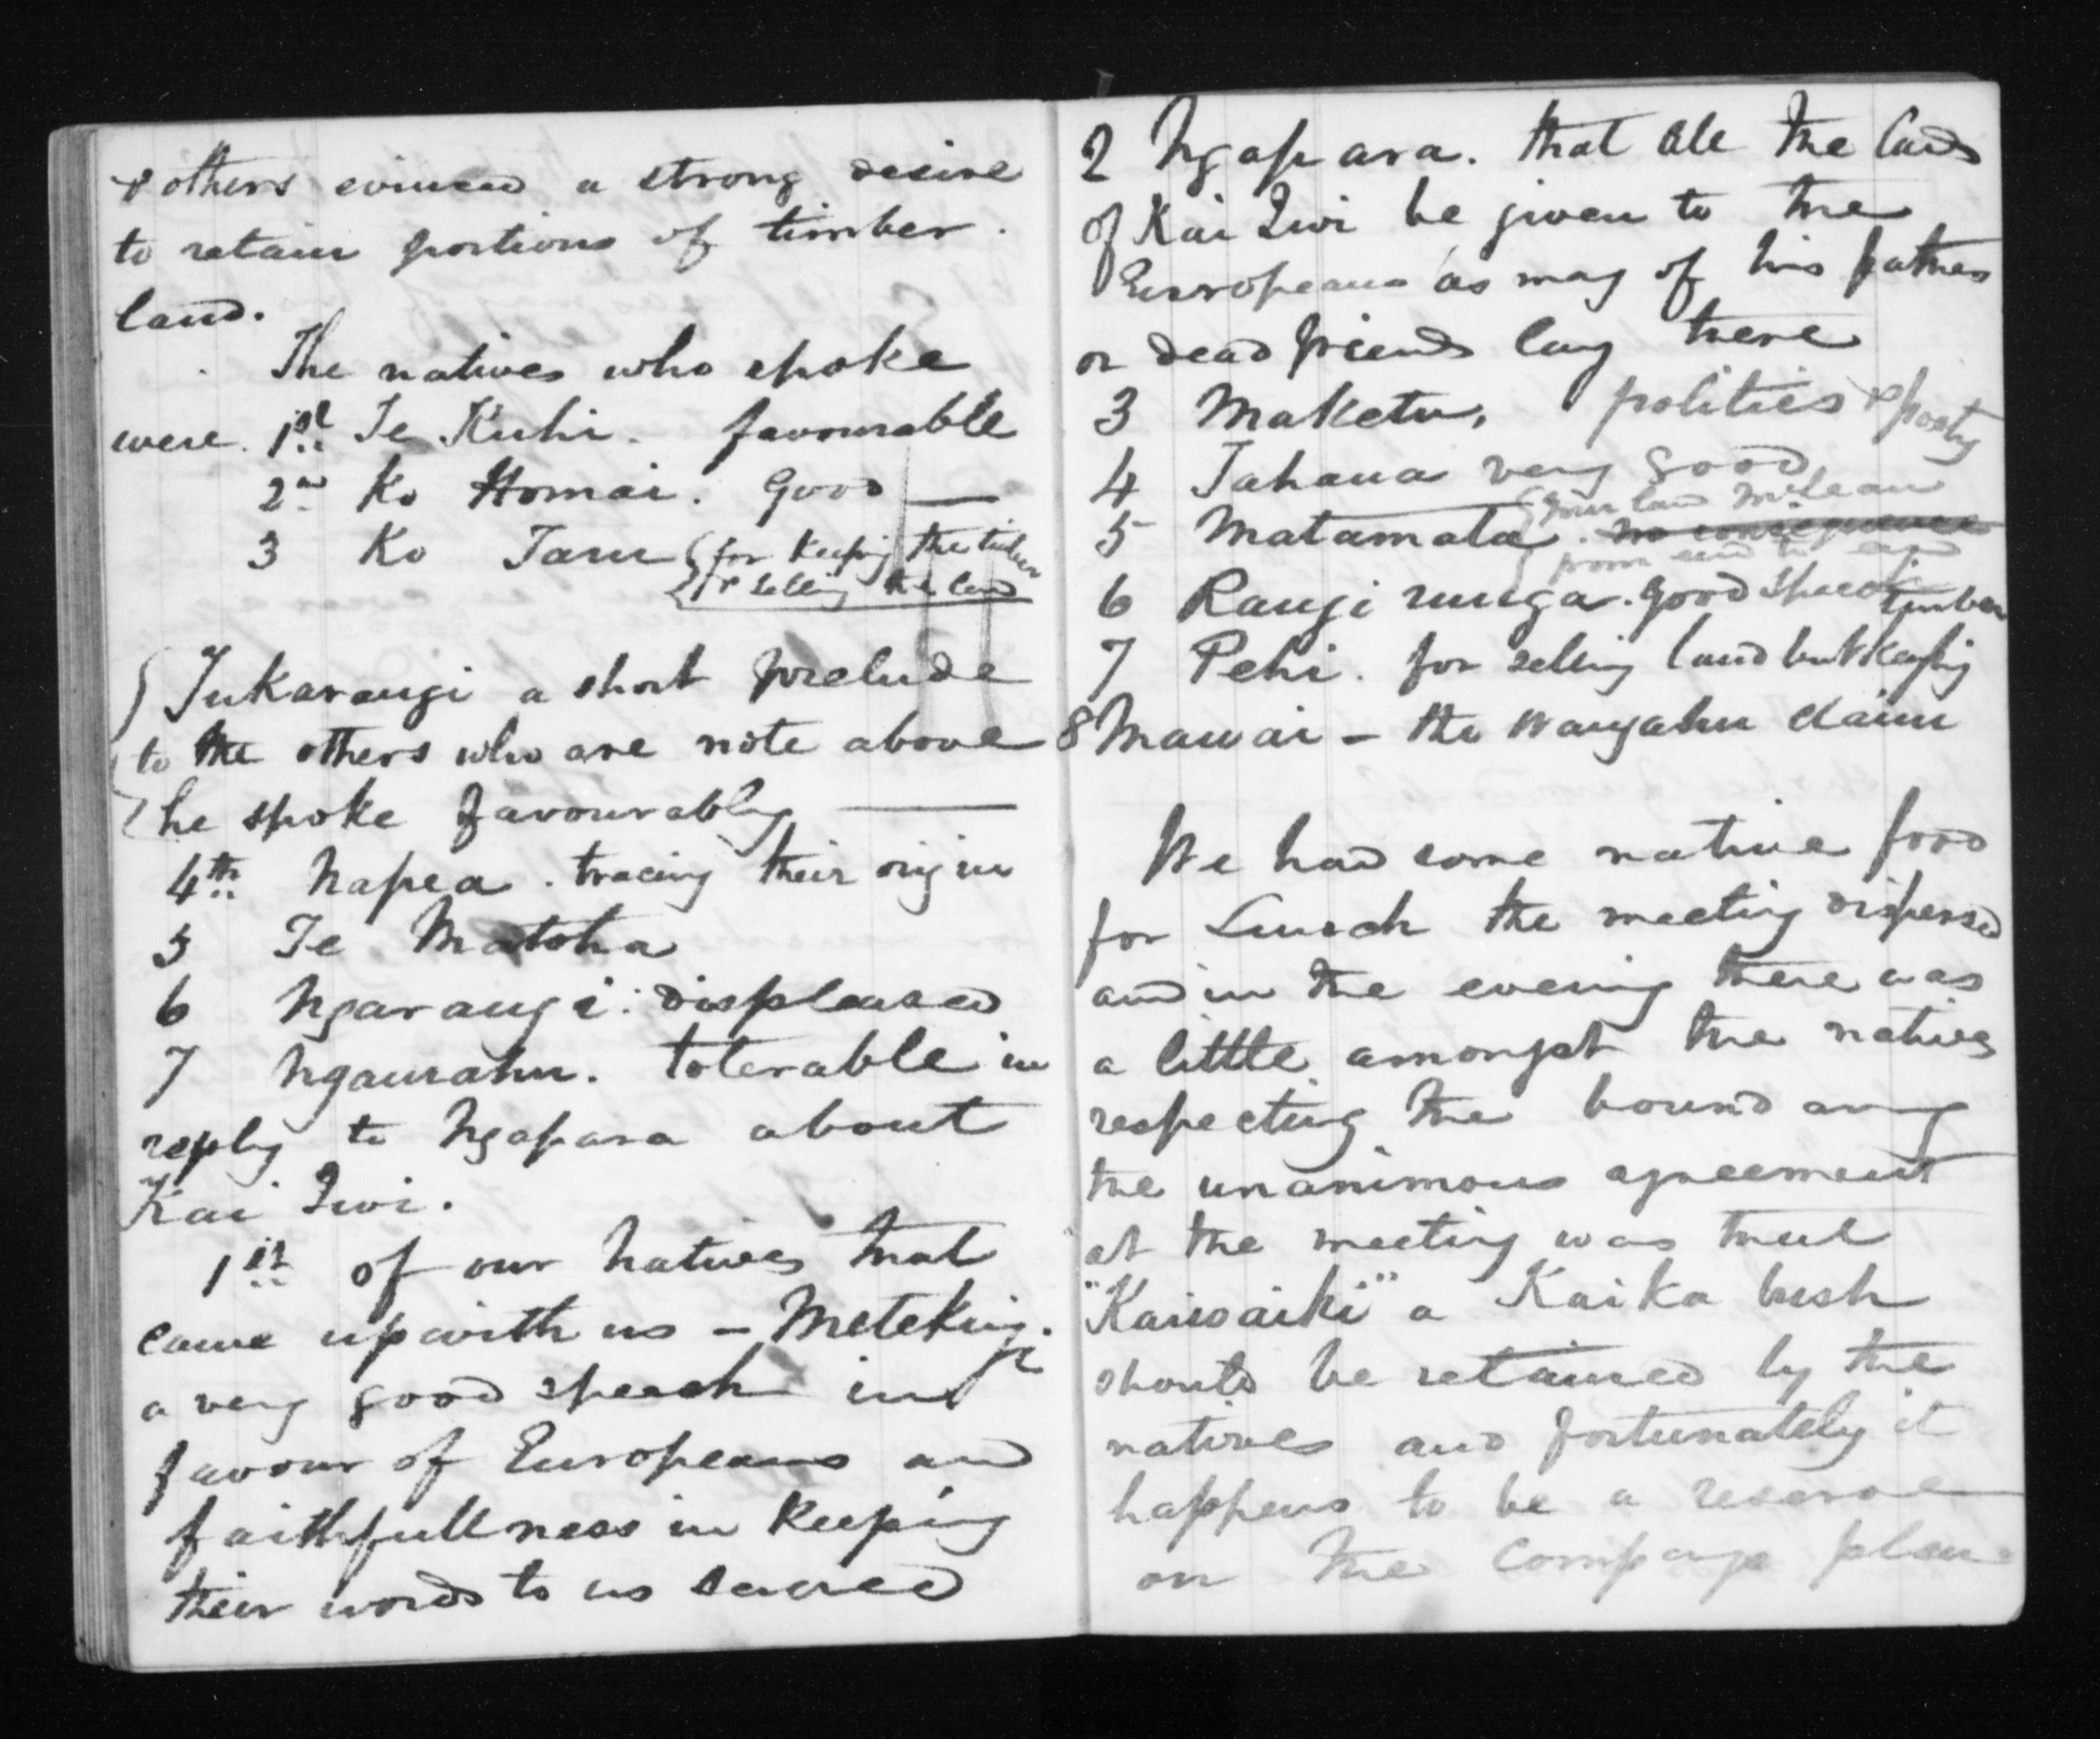 & others evinced a strong desire
to retain portions of timber
land.
The natives who spoke
were. 1st Te Kuhi. favourable
2nd Ko Homai. Good
3 Ko Taru for keeping the timber
& selling the land
Tukarangi a short prelude
to the others who are note above
he spoke favourably
4th Napea. tracing their origin
5 Te Matoha
6 Ngarangi: displeased
7 Ngaurahu. tolerable in
reply to Ngapara about
Kai Iwi.
1st of our Natives that
came up with us - Metekingi
a very good speech in
favour of Europeans and
faithfullness in keeping
their words to us sacred
2 Ngapara. that all the lands
of Kai Iwi be given to the
Europeans as many of his fathers
or dead friends lay there
3 Maketu, politics & party
4 Tahana very good
your land McLean
5 Matamata. no consequence
from end to end
6 Rangi runga. good speech timber
7 Pehi. for selling land but keeping
8 Mawai - the Wangahu claim
We had some native food
for Lunch the meeting dispersed
and in the evening there was
a little amongst the natives
respecting the boundary
the unanimous agreement
at the meeting was that
"Kaiwaiki" a Kaika bush
should be retained by the
natives and fortunately it
happens to be a reserve
on the Companys plan